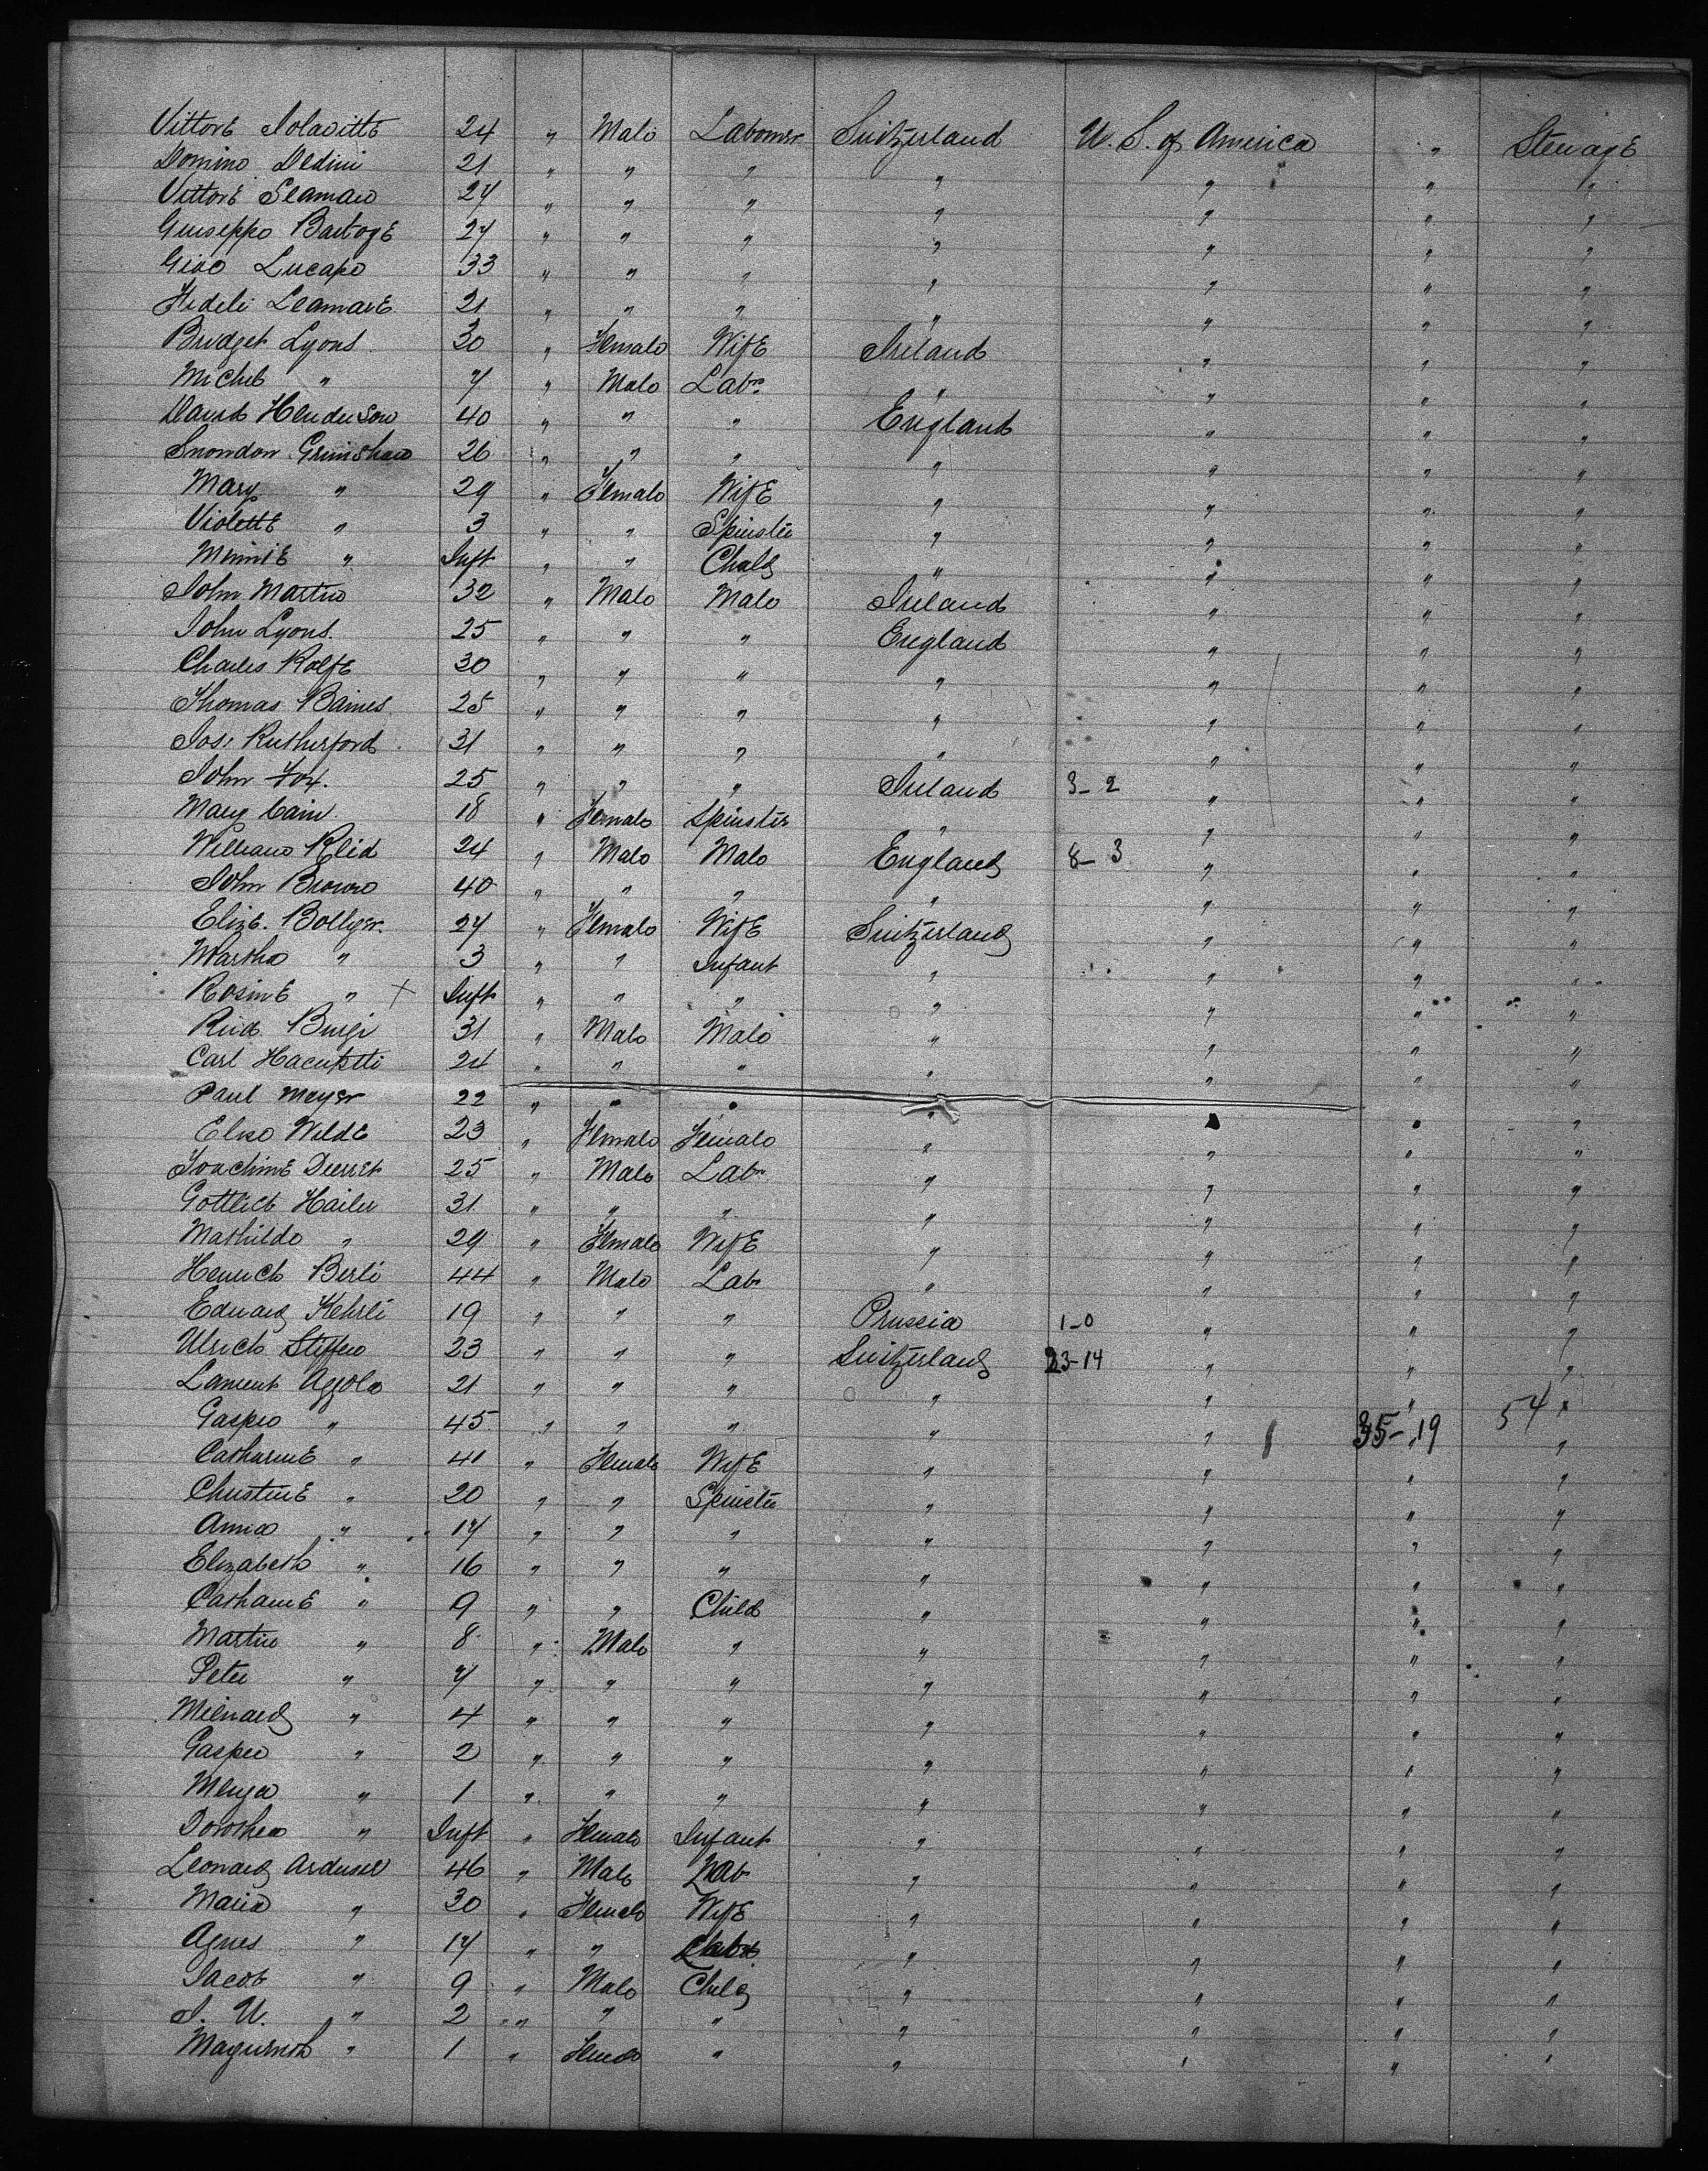 Vittore Solavitte 24 " Male Labourer Switzerland U. S. of America " Steerage
Domino Dedini 21 " " " " " " "
Vittore Seamaw 27 " " " " " " "
Guiseppo Bartoge 27 " " " " " " "
Gioo Lucapo 33 " " " " " " "
Fideli Leamare 21 " " " " " " "
Bridget Lyons 30 " Female Wife Ireland " " "
Michel " 7 " Male Labr " " " "
David Henderson 40 " " " England " " "
Snowdon Grimshaw 26 " " " " " " "
Mary " 29 " Female Wife " " " "
Violette " 3 " " Spinster " " " "
Minnie " Inft " " Child " " " "
John Martin 32 " Male Male Ireland " " "
John Lyons. 25 " " " England " " "
Charles Rolfe 30 " " " " " " "
Thomas Baines 25 " " " " " " "
Jos: Rutherford 31 " " " " " " "
John Fox. 25 " " " Ireland 3-2 " " "
Mary Cain 18 " Female Spinster " " " "
William Reid 24 " Male Male England 8-3 " " "
John Brown 40 " " " " " " "
Elize. Bollyer. 27 " Female Wife Switzerland " " "
Martha " 3 " " Infant " " " "
Rosine " X Inft " " " " " " "
Rud. Burgi 31 " Male Male " " " "
Carl 24 " " " " " " "
Paul Meyer 22 " " " " " " "
Elise Wilde 23 " Female Female " " " "
Joachime 25 " Male Labr " " " "
Gottlieb Hailer 31 " " " " " " "
Mathilde " 29 " Female Wife " " " "
Henrich Berli 44 " Male Labr " " " "
Eduard Kehrli 19 " " " Prussia 1-0 " " "
Ulrich Steffen 23 " " " Switzerland 23-14 " " "
Laurent Aggola 21 " " " " " " "
Gasper " 45 " " " " " 35-19 " 54 "
Catharine " 41 " Female Wife " " " "
Christine " 20 " " Spinster " " " "
Anna " 17 " " " " " " "
Elizabeth " 16 " " " " " " "
Catharine " 9 " " Child " " " "
Martin " 8 " Male " " " " "
Peter " 7 " " " " " " "
Meinard " 4 " " " " " " "
Gasper " 2 " " " " " " "
Menga " 1 " " " " " " "
Dorothea " Inft " Female Infant " " " "
Leonard Arduser 46 " Male Lab " " " "
Maria " 30 " Female Wife " " " "
Agnes " 17 " " " " " "
Jacob " 9 " Male Child " " " "
J. U. " 2 " " " " " " "
" 1 " Female " " " " "